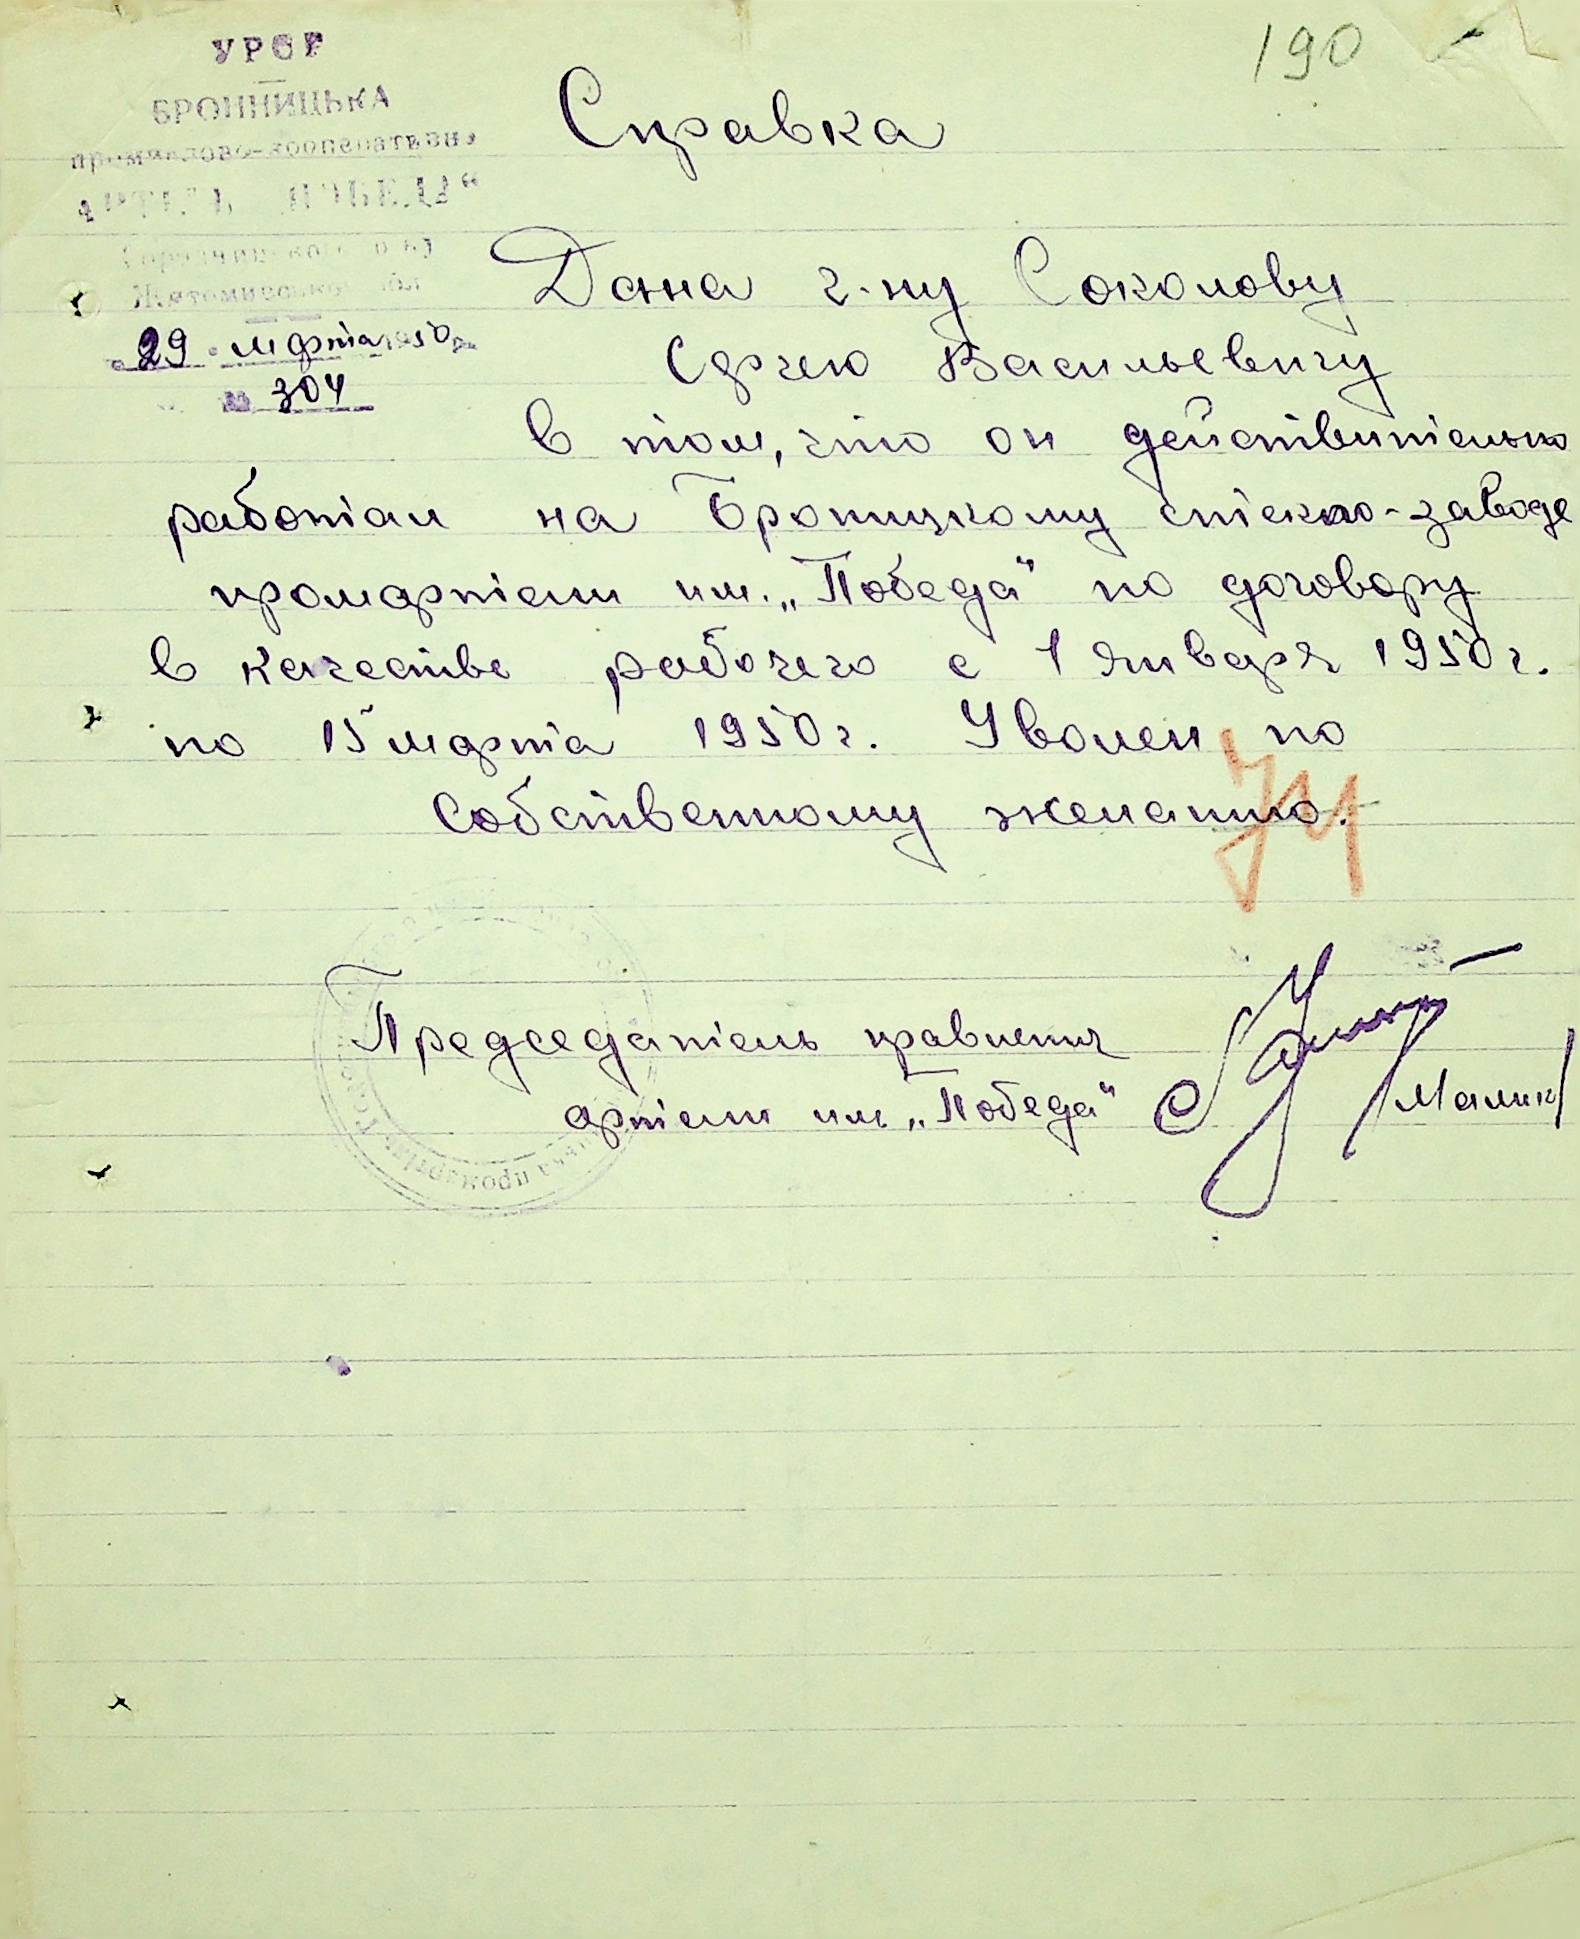 190
УРСР
БРОННИЦЬКА
промислово-кооперативна
АРТІЛЬ „ПОБЕДА“
Житомирської обл
„29“ марта 1950 р.
№ 304
Справка
Дана г-ну Соколову
Сергею Васильевичу
в том, что он действительно
работал на Броницкому стекло-заводе
промартели им. „Победа“ по договору
в качестве рабочего с 1 января 1950 г.
по 15 марта 1950 г. Уволен по
собственному желанию.
Председатель правления
артели им „Победа“
/Малик/